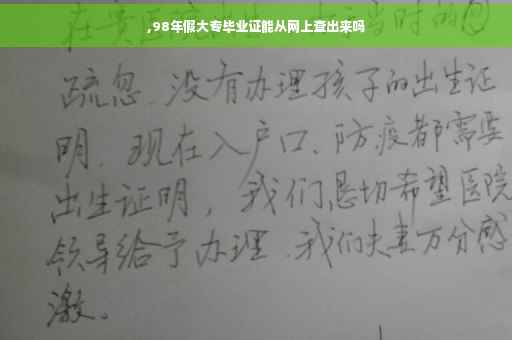 ,98年假大专毕业证能从网上查出来吗
当时的
疏忽.没有办理孩子的出生证
明.现在入户口、防疫都需要
出生证明，我们恳切希望医院
领导给予办理.我们夫妻万分感
激。